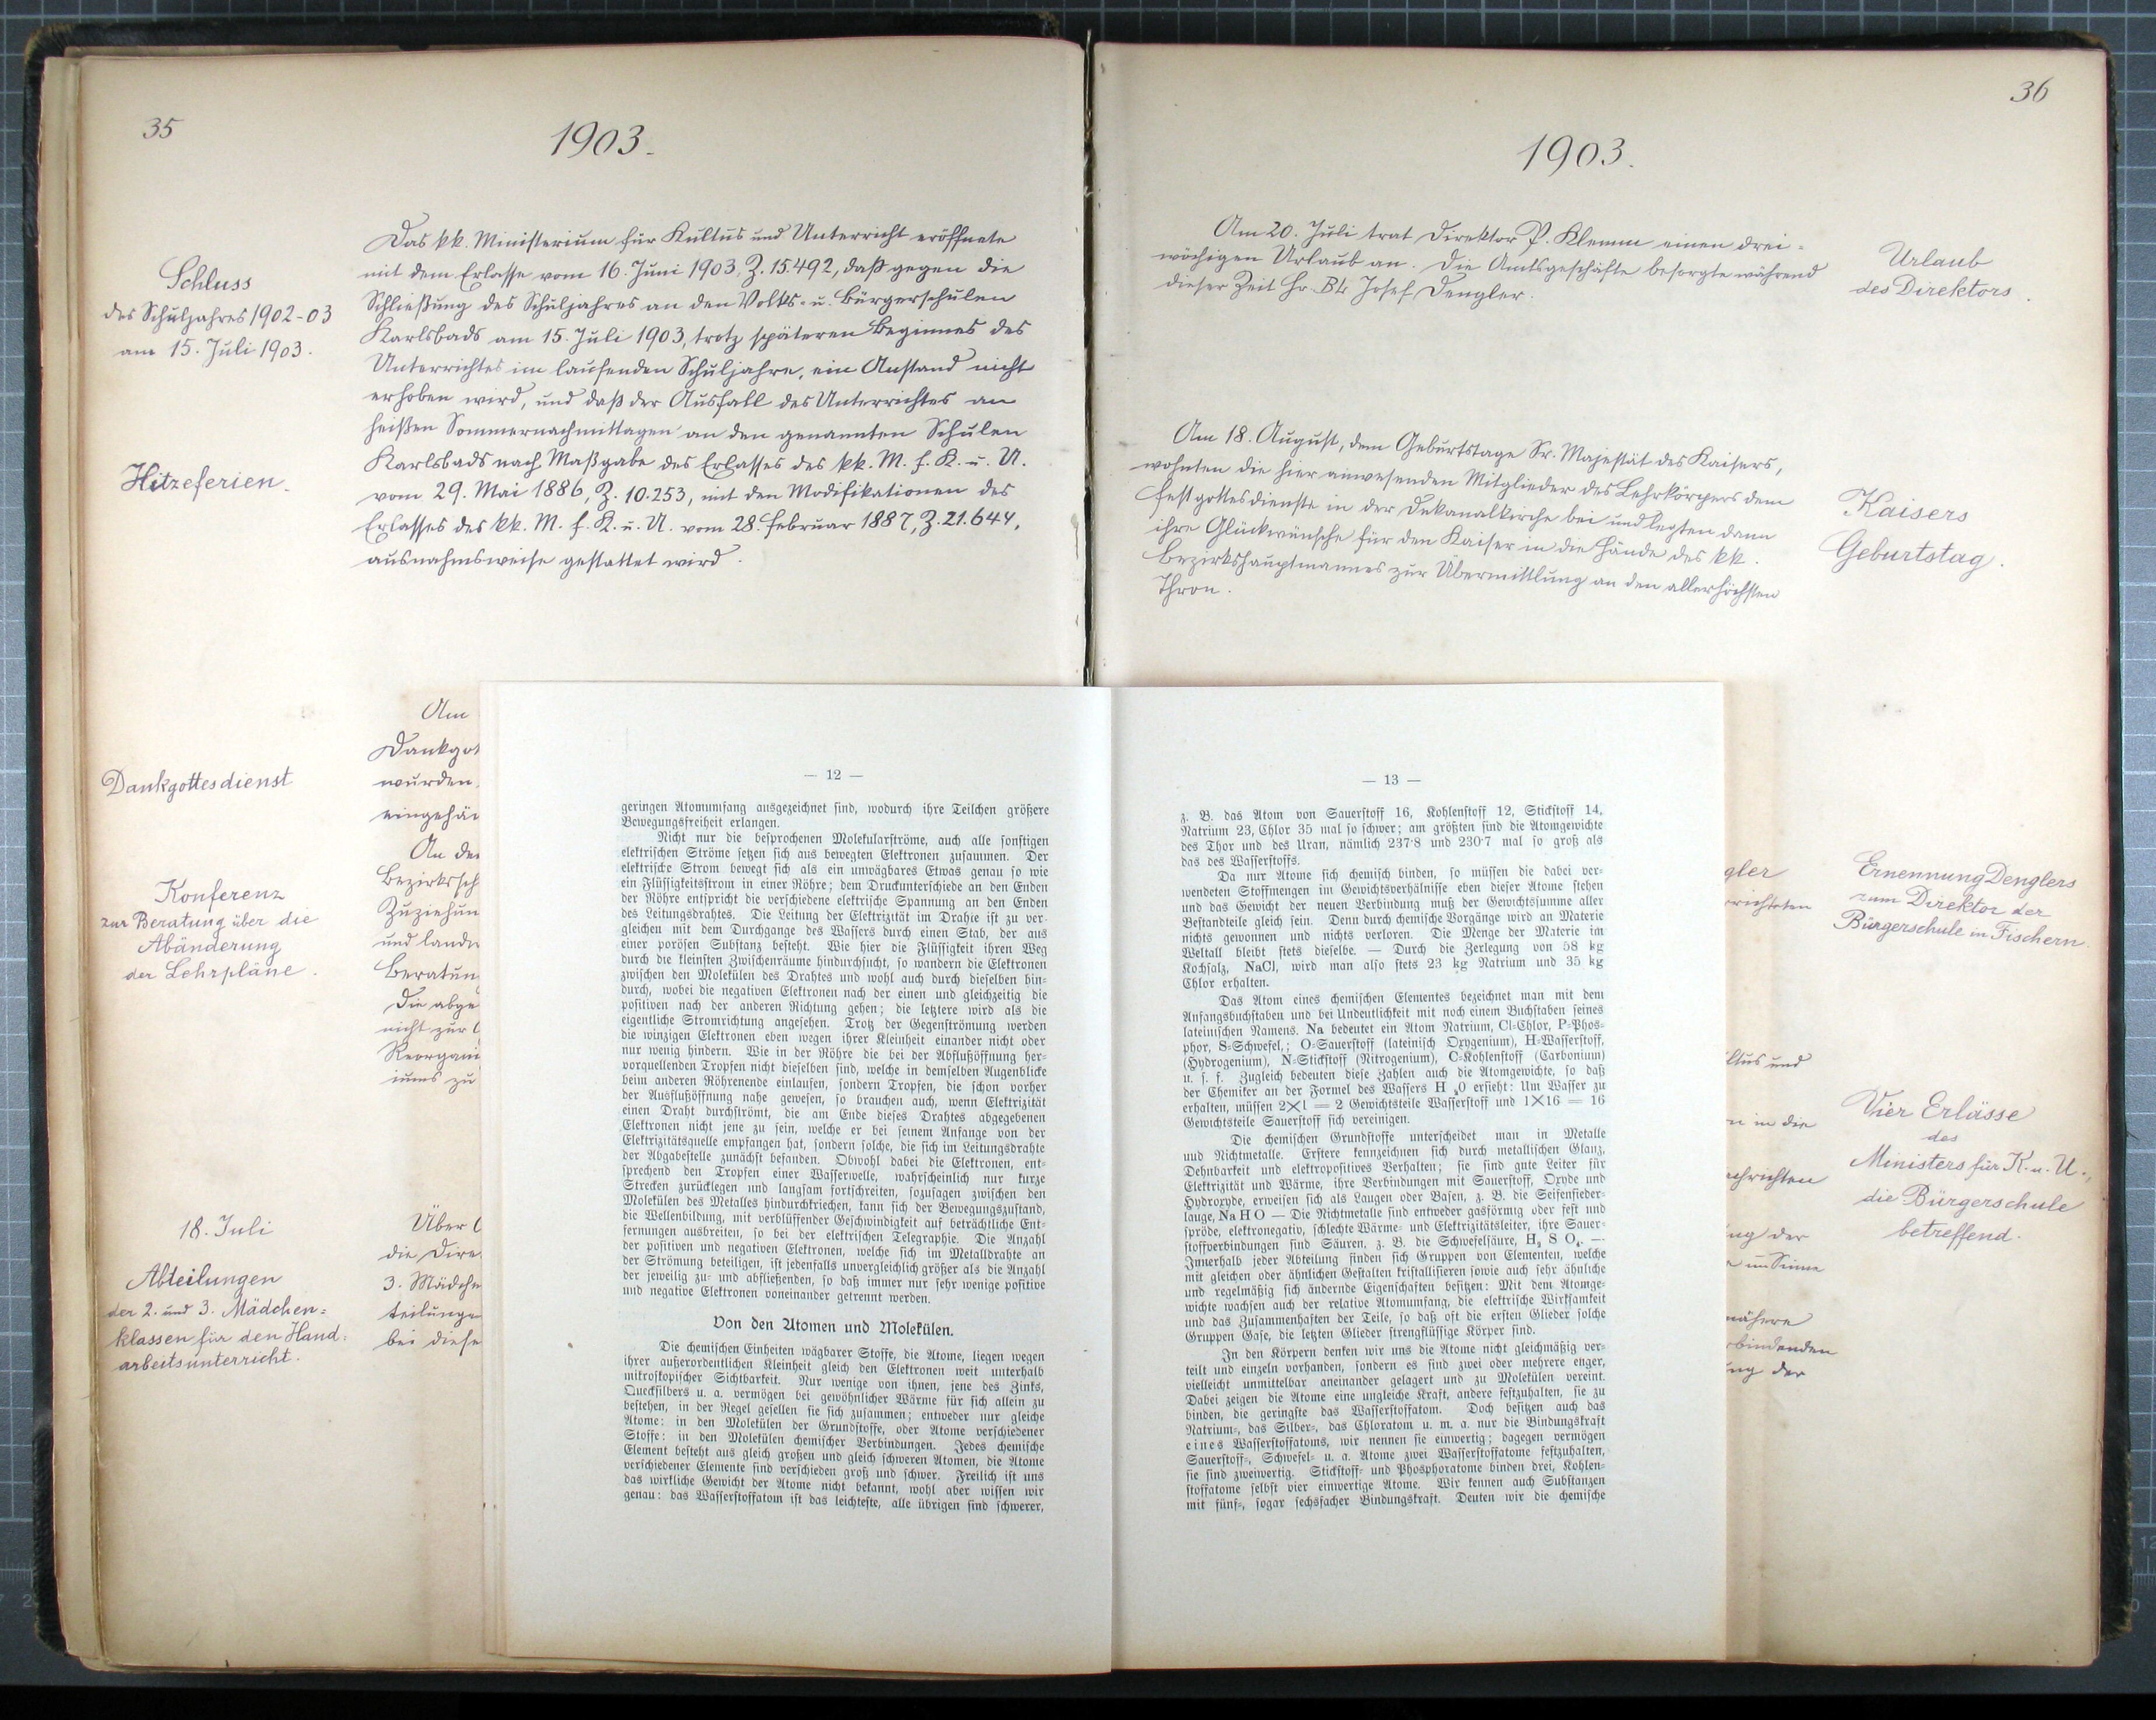 35
1903.
Schluss
des Schuljahres 1902-03
am 15. Juli 1903.
Hitzeferien.
Das kk. Ministerium für Kultus und Unterricht eröffnete
mit dem Erlasse vom 16. Juni 1903, Z. 15.492, daß gegen die
Schließung des Schuljahres an den Volks- u. Bürgerschulen
Karlsbads am 15. Juli 1903, trotz späteren Beginnes des
Unterrichtes im laufenden Schuljahre, ein Anstand nicht
erhoben wird, und daß der Ausfall des Unterrichtes an
heißen Sommernachmittagen an den genannten Schulen
Karlsbads nach Maßgabe des Erlasses des kk. M. f. K. u. U.
vom 29. Mai 1886, Z. 10.253, mit den Modifikationen des
Erlasses des kk. M. f. K. u. U. vom 28. Februar 1887, Z. 21.644,
ausnahmsweise gestattet wird.
Dankgottesdienst
Konferenz
zur Beratung über die
Abänderung
der Lehrpläne.
18. Juli
Abteilungen
der 2. und 3. Mädchen=
klassen für den Hand=
arbeitsunterricht.
Am
Dankgot
wurden,
eingehän
An der
Bezirkssch
Zuziehun
und landw
Beratun
Die abge
nicht zur
Reorgani
iums zu
Über
die Dire
3. Mädche
teilunge
bei diese
— 12 —
geringen Atomumfang ausgezeichnet sind, wodurch ihre Teilchen größere
Bewegungsfreiheit erlangen.
Nicht nur die besprochenen Molekularströme, auch alle sonstigen
elektrischen Ströme setzen sich aus bewegten Elektronen zusammen. Der
elektrische Strom bewegt sich als ein unwägbares Etwas genau so wie
ein Flüssigkeitsstrom in einer Röhre; dem Druckunterschiede an den Enden
der Röhre entspricht die verschiedene elektrische Spannung an den Enden
des Leitungsdrahtes. Die Leitung der Elektrizität im Drahte ist zu ver-
gleichen mit dem Durchgange des Wassers durch einen Stab, der aus
einer porösen Substanz besteht. Wie hier die Flüssigkeit ihren Weg
durch die kleinsten Zwischenräume hindurchsucht, so wandern die Elektronen
zwischen den Molekülen des Drahtes und wohl auch durch dieselben hin-
durch, wobei die negativen Elektronen nach der einen und gleichzeitig die
positiven nach der anderen Richtung gehen; die letztere wird als die
eigentliche Stromrichtung angesehen. Trotz der Gegenströmung werden
die winzigen Elektronen eben wegen ihrer Kleinheit einander nicht oder
nur wenig hindern. Wie in der Röhre die bei der Abflußöffnung her-
vorquellenden Tropfen nicht dieselben sind, welche in demselben Augenblicke
beim anderen Röhrenende einlaufen, sondern Tropfen, die schon vorher
der Ausflußöffnung nahe gewesen, so brauchen auch, wenn Elektrizität
einen Draht durchströmt, die am Ende dieses Drahtes abgegebenen
Elektronen nicht jene zu sein, welche er bei seinem Anfange von der
Elektrizitätsquelle empfangen hat, sondern solche, die sich im Leitungsdrahte
der Abgabestelle zunächst befanden. Obwohl dabei die Elektronen, ent-
sprechend den Tropfen einer Wasserwelle, wahrscheinlich nur kurze
Strecken zurücklegen und langsam fortschreiten, sozusagen zwischen den
Molekülen des Metalles hindurchkriechen, kann sich der Bewegungszustand,
die Wellenbildung, mit verblüffender Geschwindigkeit auf beträchtliche Ent-
fernungen ausbreiten, so bei der elektrischen Telegraphie. Die Anzahl
der positiven und negativen Elektronen, welche sich im Metalldrahte an
der Strömung beteiligen, ist jedenfalls unvergleichlich größer als die Anzahl
der jeweilig zu- und abfließenden, so daß immer nur sehr wenige positive
und negative Elektronen voneinander getrennt werden.
Von den Atomen und Molekülen.
Die chemischen Einheiten wägbarer Stoffe, die Atome, liegen wegen
ihrer außerordentlichen Kleinheit gleich den Elektronen weit unterhalb
mikroskopischer Sichtbarkeit. Nur wenige von ihnen, jene des Zinks,
Quecksilbers u. a. vermögen bei gewöhnlicher Wärme für sich allein zu
bestehen, in der Regel gesellen sie sich zusammen; entweder nur gleiche
Atome: in den Molekülen der Grundstoffe, oder Atome verschiedener
Stoffe: in den Molekülen chemischer Verbindungen. Jedes chemische
Element besteht aus gleich großen und gleich schweren Atomen, die Atome
verschiedener Elemente sind verschieden groß und schwer. Freilich ist uns
das wirkliche Gewicht der Atome nicht bekannt, wohl aber wissen wir
genau: das Wasserstoffatom ist das leichteste, alle übrigen sind schwerer,
36
1903.
Am 20. Juli trat Direktor P. Klemm einen drei=
wöchigen Urlaub an. Die Amtsgeschäfte besorgte während
dieser Zeit Hr. BL Josef Dengler.
Urlaub
des Direktors.
Am 18. August, dem Geburtstage Sr. Majestät des Kaisers,
wohnten die hier anwesenden Mitglieder des Lehrkörpers dem
Festgottesdienste in der Dekanalkirche bei und legten dann
ihre Glückwünsche für den Kaiser in die Hände des kk.
Bezirkshauptmannes zur Übermittlung an den allerhöchsten
Thron.
Kaisers
Geburtstag.
— 13 —
z. B. das Atom von Sauerstoff 16, Kohlenstoff 12, Stickstoff 14,
Natrium 23, Chlor 35 mal so schwer; am größten sind die Atomgewichte
des Thor und des Uran, nämlich 237·8 und 230·7 mal so groß als
das des Wasserstoffs.
Da nur Atome sich chemisch binden, so müssen die dabei ver-
wendeten Stoffmengen im Gewichtsverhälnisse eben dieser Atome stehen
und das Gewicht der neuen Verbindung muß der Gewichtsumme aller
Bestandteile gleich sein. Denn durch chemische Vorgänge wird an Materie
nichts gewonnen und nichts verloren. Die Menge der Materie im
Weltall bleibt stets dieselbe. — Durch die Zerlegung von 58 kg
Kochsalz, NaCl, wird man also stets 23 kg Natrium und 35 kg
Chlor erhalten.
Das Atom eines chemischen Elementes bezeichnet man mit dem
Anfangsbuchstaben und bei Undeutlichkeit mit noch einem Buchstaben seines
lateinischen Namens. Na bedeutet ein Atom Natrium, Cl=Chlor, P=Phos-
phor, S=Schwefel,; O=Sauerstoff (lateinisch Oxygenium), H=Wasserstoff,
(Hydrogenium), N=Stickstoff (Nitrogenium), C=Kohlenstoff (Carbonium)
u. s. f. Zugleich bedeuten diese Zahlen auch die Atomgewichte, so daß
der Chemiker an der Formel des Wassers H₂O ersieht: Um Wasser zu
erhalten, müssen 2×1 = 2 Gewichtsteile Wasserstoff und 1×16 = 16
Gewichtsteile Sauerstoff sich vereinigen.
Die chemischen Grundstoffe unterscheidet man in Metalle
und Nichtmetalle. Erstere kennzeichnen sich durch metallischen Glanz,
Dehnbarkeit und elektropositives Verhalten; sie sind gute Leiter für
Elektrizität und Wärme, ihre Verbindungen mit Sauerstoff, Oxyde und
Hydroxyde, erweisen sich als Laugen oder Basen, z. B. die Seifensieder-
lauge, Na H O — Die Nichtmetalle sind entweder gasförmig oder fest und
spröde, elektronegativ, schlechte Wärme- und Elektrizitätsleiter, ihre Sauer-
stoffverbindungen sind Säuren, z. B. die Schwefelsäure, H₂ S O₄. —
Innerhalb jeder Abteilung finden sich Gruppen von Elementen, welche
mit gleichen oder ähnlichen Gestalten kristallisieren sowie auch sehr ähnliche
und regelmäßig sich ändernde Eigenschaften besitzen: Mit dem Atomge-
wichte wachsen auch der relative Atomumfang, die elektrische Wirksamkeit
und das Zusammenhaften der Teile, so daß oft die ersten Glieder solche
Gruppen Gase, die letzten Glieder strengflüssige Körper sind.
In den Körpern denken wir uns die Atome nicht gleichmäßig ver-
teilt und einzeln vorhanden, sondern es sind zwei oder mehrere enger,
vielleicht unmittelbar aneinander gelagert und zu Molekülen vereint.
Dabei zeigen die Atome eine ungleiche Kraft, andere festzuhalten, sie zu
binden, die geringste das Wasserstoffatom. Doch besitzen auch das
Natrium-, das Silber-, das Chloratom u. m. a. nur die Bindungskraft
eines Wasserstoffatoms, wir nennen sie einwertig; dagegen vermögen
Sauerstoff-, Schwefel- u. a. Atome zwei Wasserstoffatome festzuhalten,
sie sind zweiwertig. Stickstoff- und Phosphoratome binden drei, Kohlen-
stoffatome selbst vier einwertige Atome. Wir kennen auch Substanzen
mit fünf-, sogar sechsfacher Bindungskraft. Deuten wir die chemische
gler
rrichteten
ltus und
n in die
achrichten
ung der
e im Sinne
nähere
rbindenden
ung der
Ernennung Denglers
zum Direktor der
Bürgerschule in Fischern.
Vier Erlässe
des
Ministers für K. u. U.,
die Bürgerschule
betreffend.